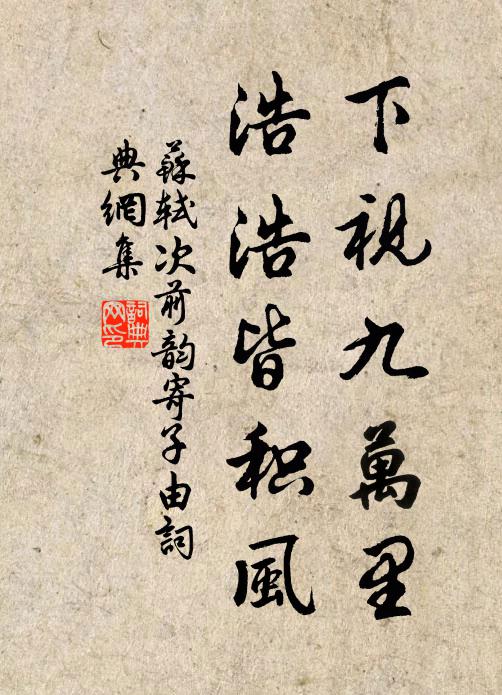 下視九萬里
浩浩皆积風
蘇軾次前韵寄子由詞
典網集
詞典网印